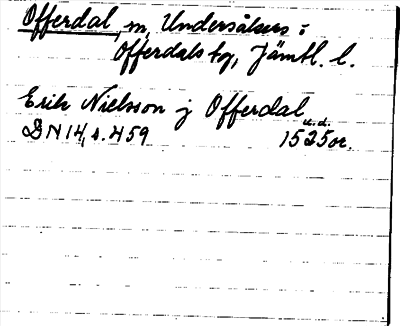 Offerdal, m, Undersåkers i
Offerdals tg, Jämtl. l.
Erik Nielsson j Offerdal
DN 14, s. 459 1525 or.
u.d.